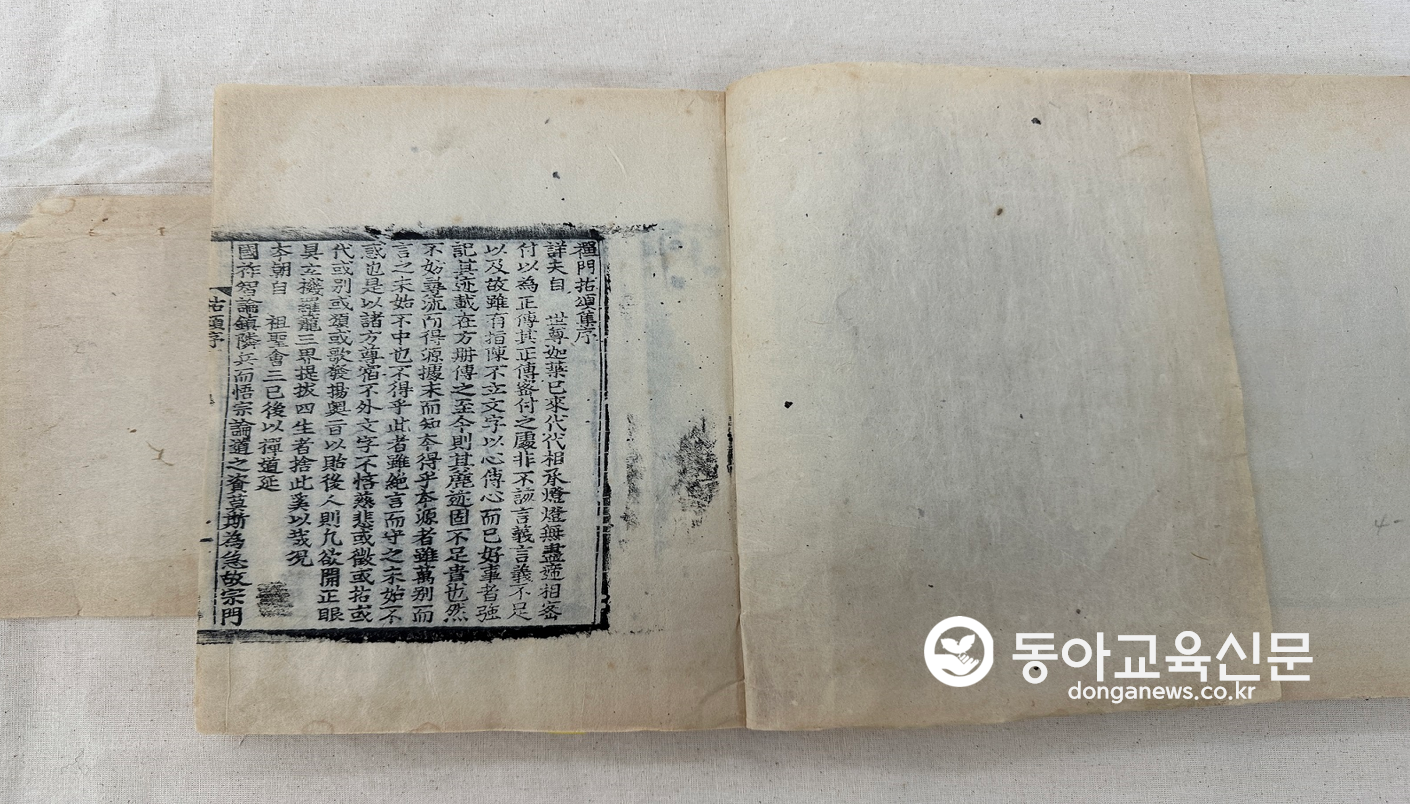 禪門拈頌集序
詳夫自 世尊迦葉已來代代相承燈燈無盡遞相密
付以為正傳其正傳密付之處非不該言義言義不足
以及故雖有指陳不立文字以心傳心而已好事者强
記其迹載在方册傳之至今則其麁迹固不足貴也然
不妨尋流而得源據末而知本得乎本源者雖萬別而
言之未始不中也不得乎此者雖絶言而守之未始不
惑也是以諸方尊宿不外文字不悋慈悲或徵或拈或
代或別或頌或歌發揚奧旨以貽後人則凡欲開正眼
具玄機羅籠三界提拔四生者捨此奚以哉況
本朝自 祖聖會三已後以禪道延
國祚智論鎮隣兵而悟宗論道之資莫斯為急故宗門
拈頌序
동아교육신문
donganews.co.kr